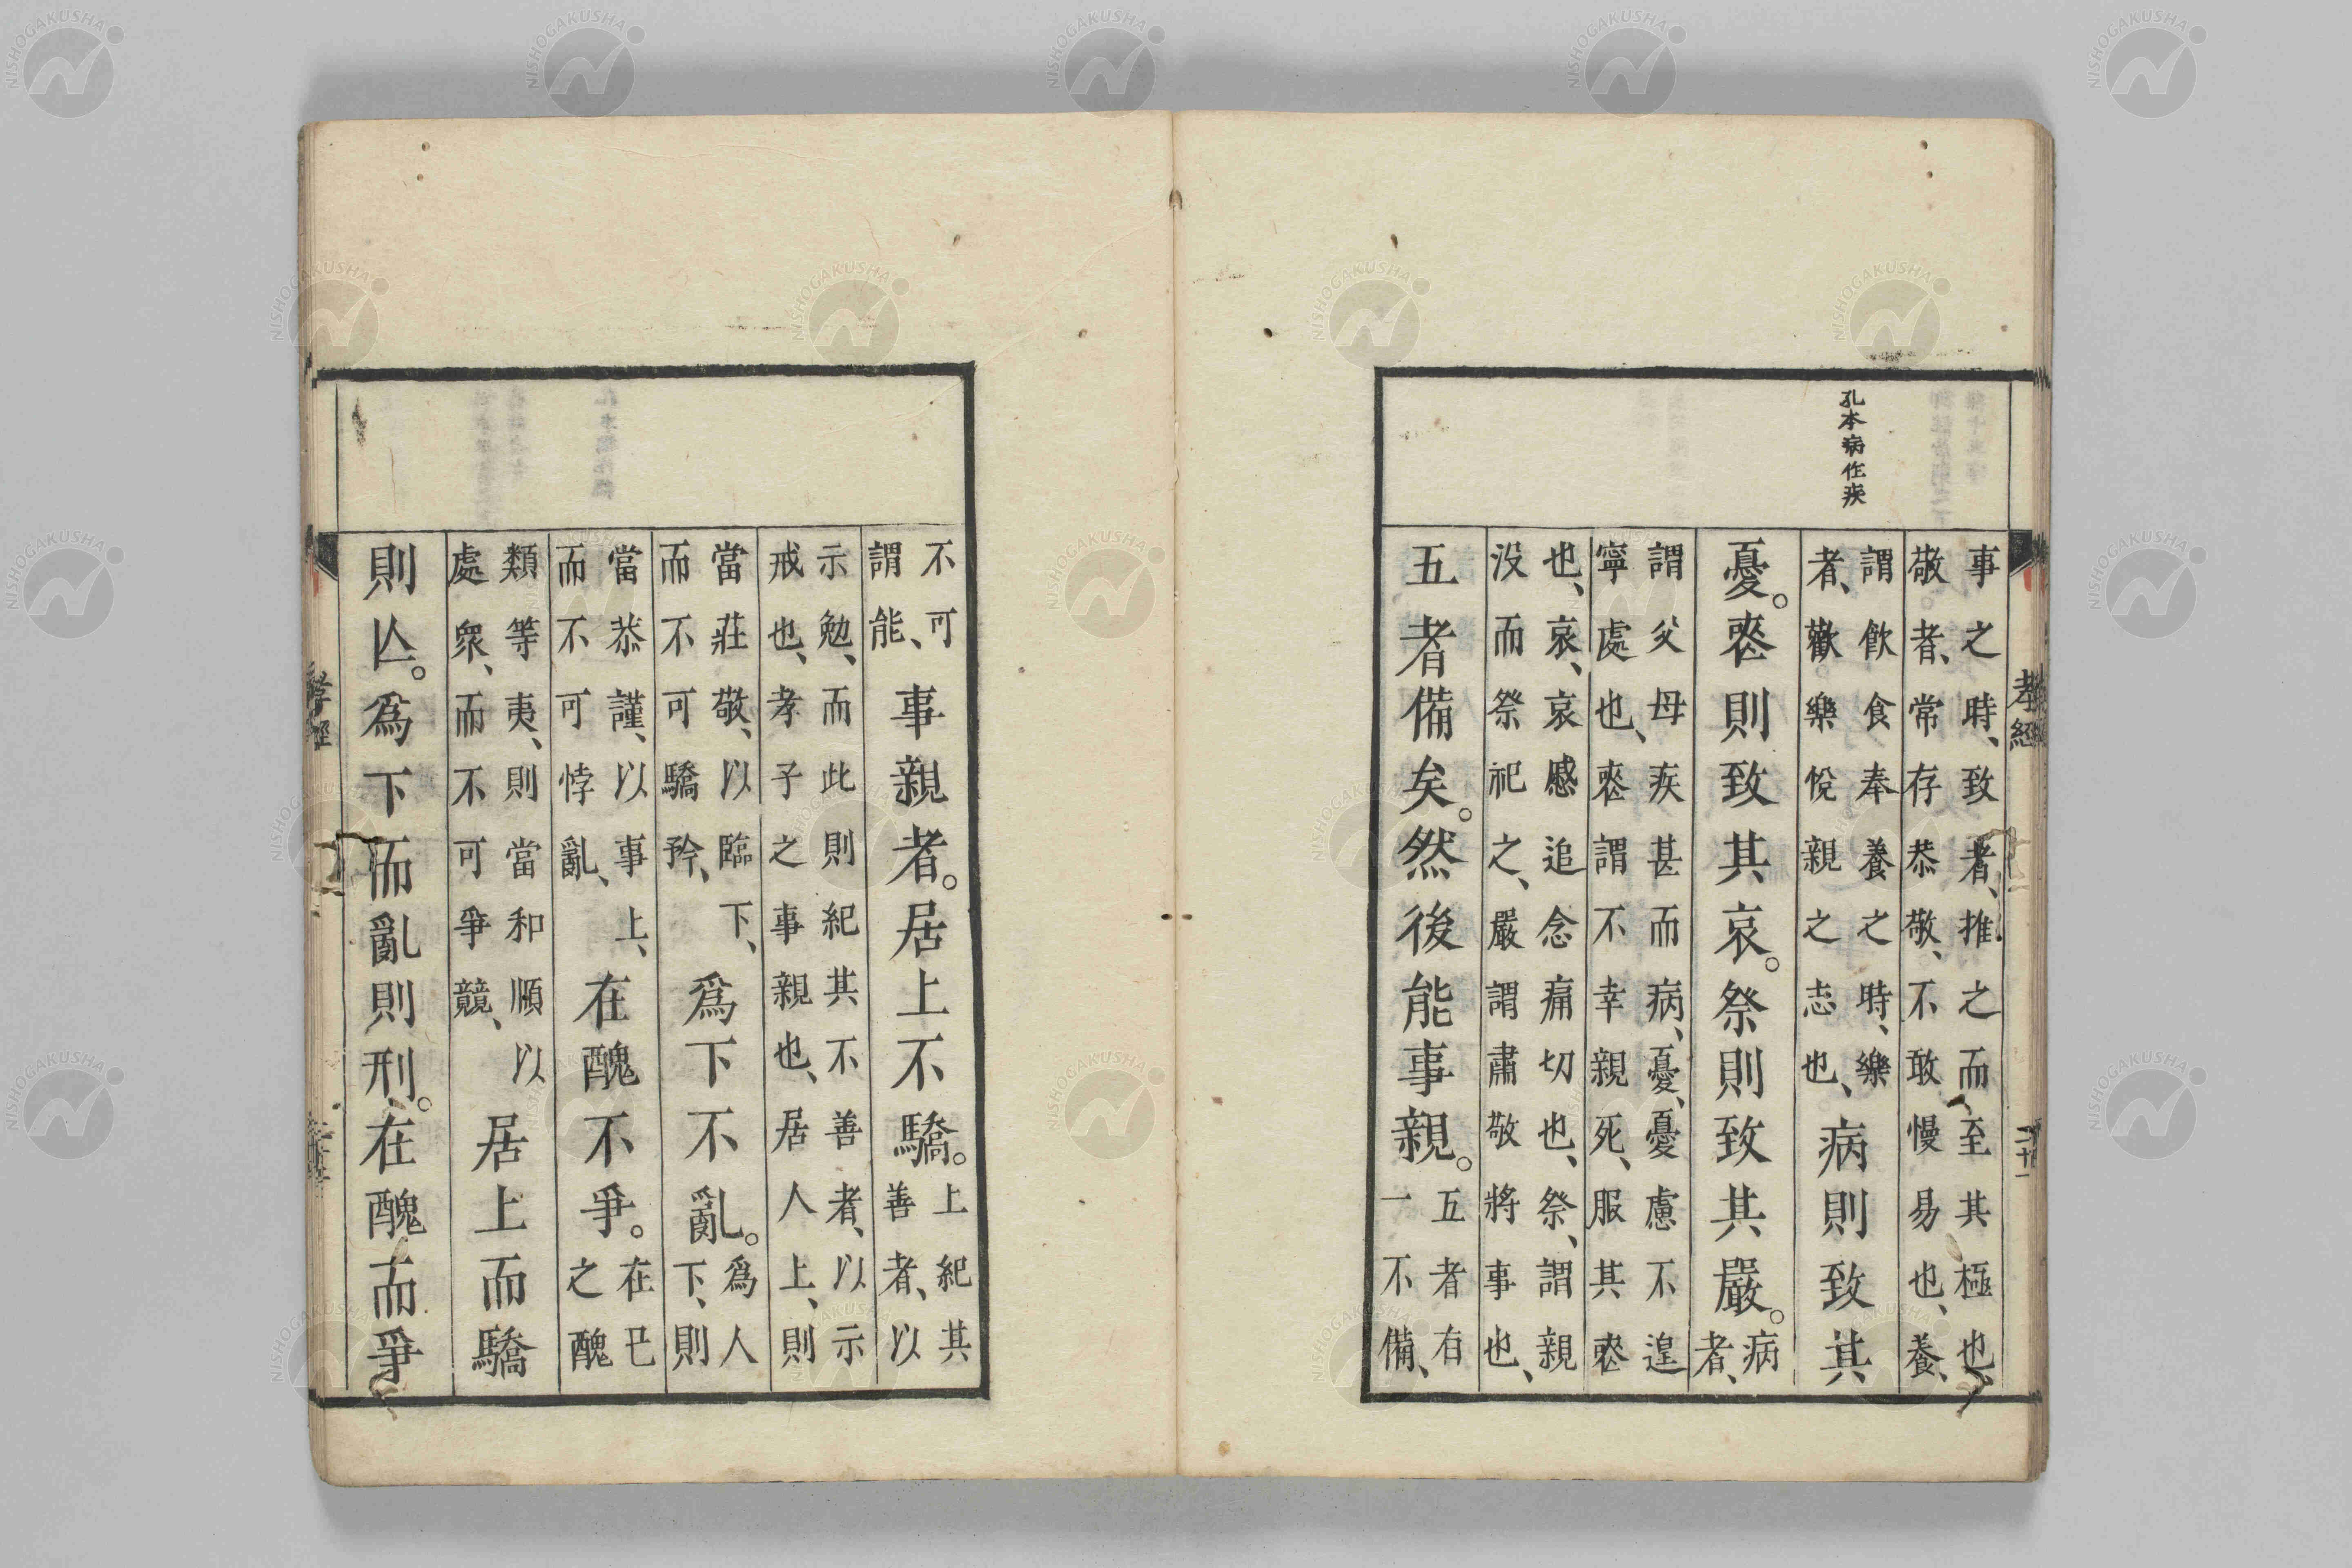 孝經
二十一
孔本病作疾
事之時、致者、推之而至其極也、
敬者、常存恭敬、不敢慢易也、養、
謂飲食奉養之時、樂
者、歡樂悅親之志也、
病則致其
憂。䘮則致其哀。祭則致其嚴。
病
者、
謂父母疾甚而病、憂、憂慮不遑
寧處也、䘮謂不幸親死、服其䘮
也、哀、哀慼追念痛切也、祭、謂親
没而祭祀之、嚴謂肅敬將事也、
五者備矣。然後能事親。
五者有
一不備、
不可
謂能、
事親者。居上不驕。
上紀其
善者、以
示勉、而此則紀其不善者、以示
戒也、孝子之事親也、居人上、則
當莊敬、以臨下、
而不可驕矜、
爲下不亂。
爲人
下、則
當恭謹、以事上、
而不可悖亂、
在醜不爭。
在已
之醜
類等夷、則當和順以
處衆、而不可爭競、
居上而驕
則亾。爲下而亂則刑。在醜而爭
孝經
NISHOGAKUSHA